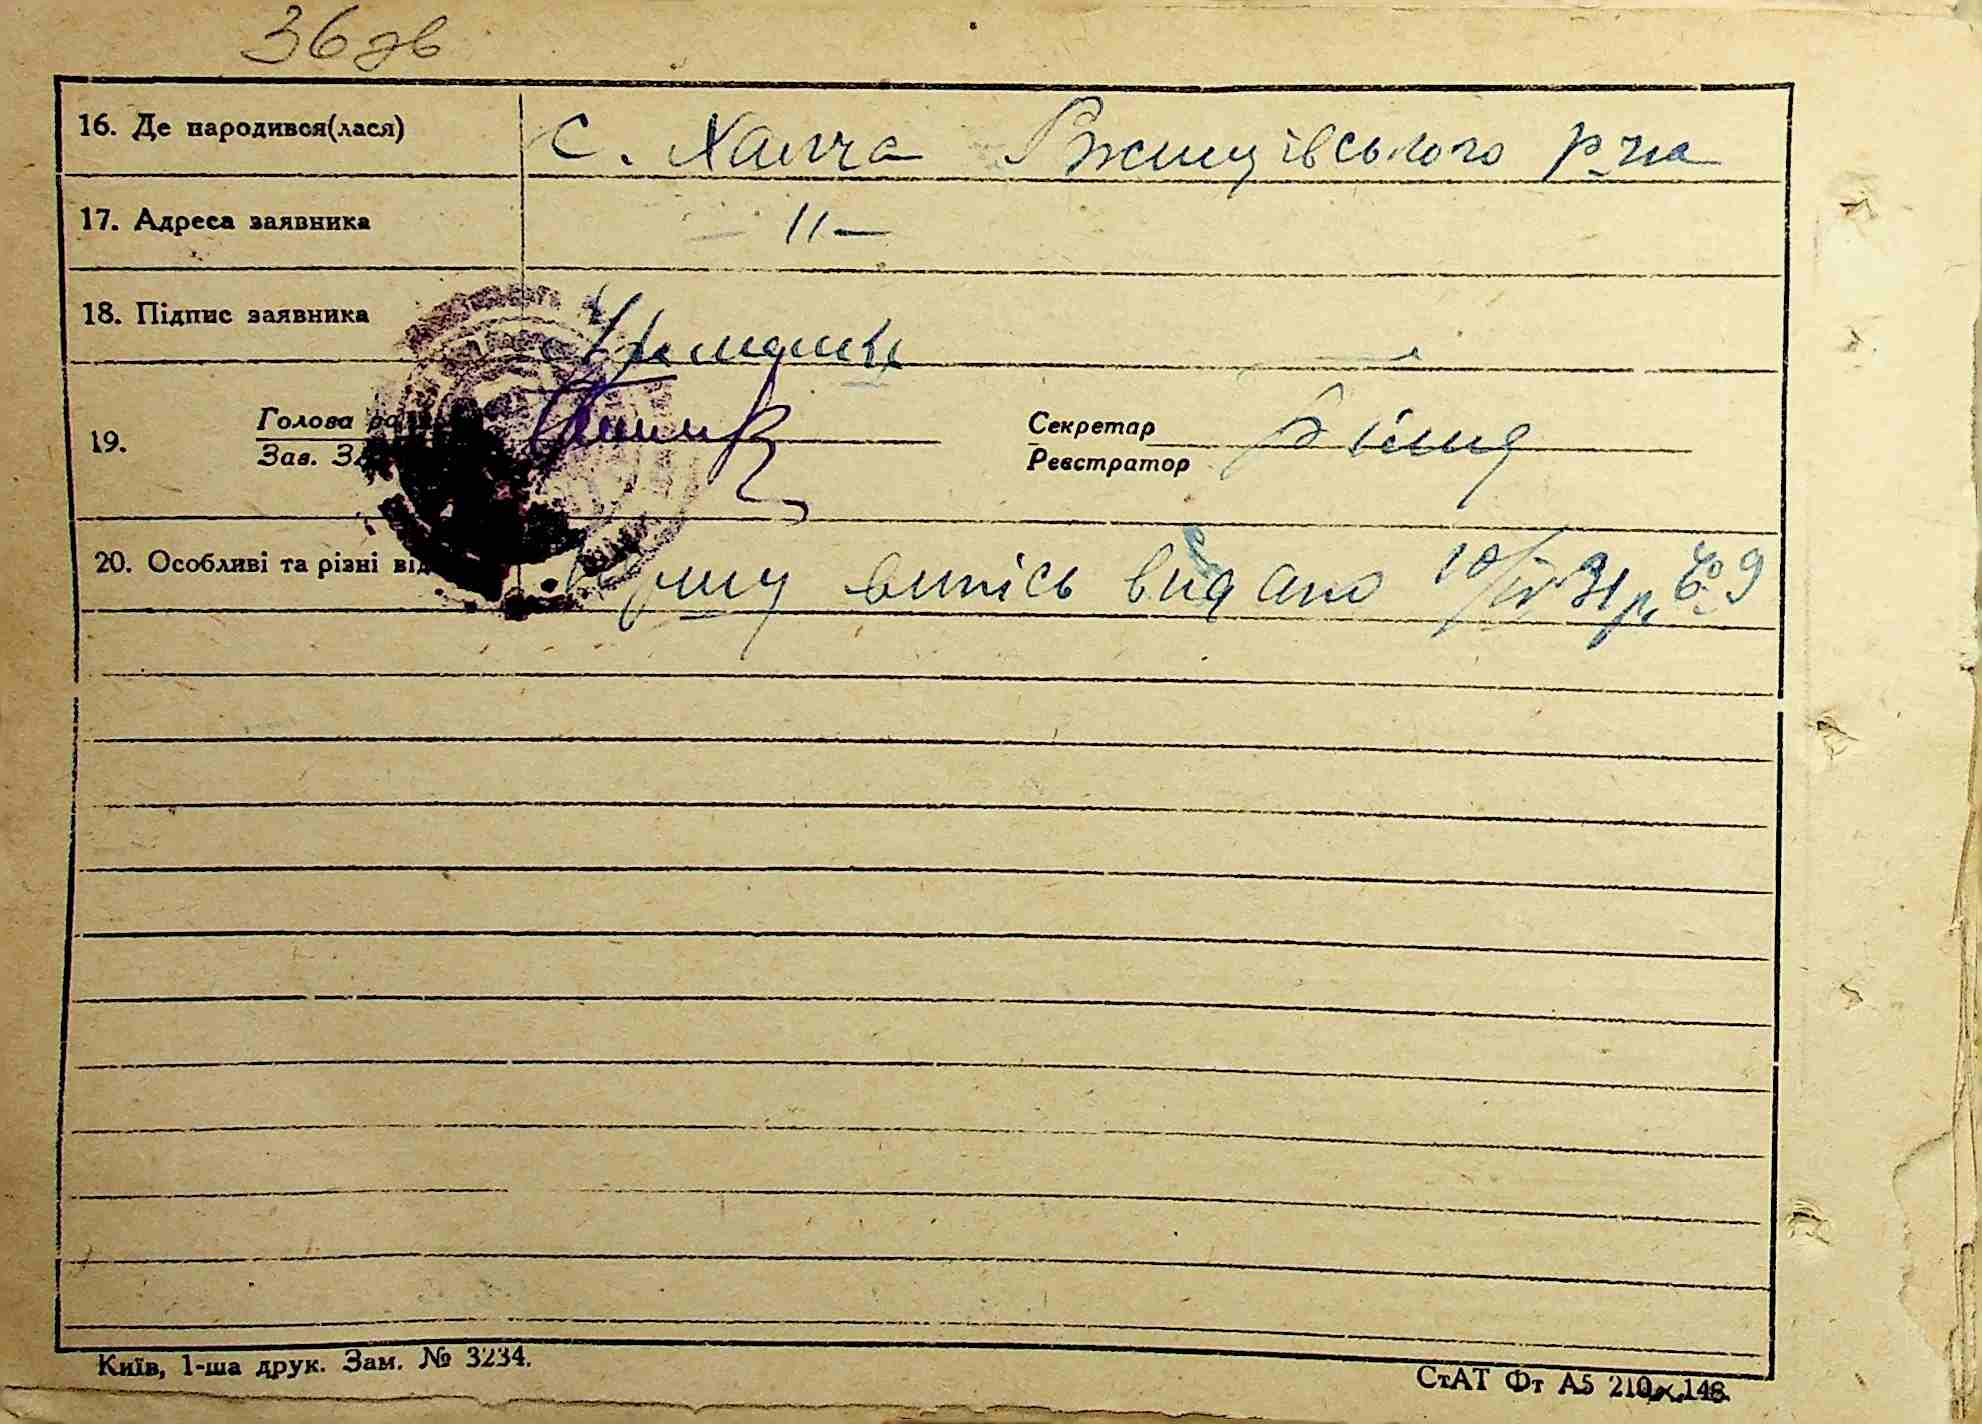 36 зв
16. Де народився(лася) с. Халча Ржищівського р-на
17. Адреса заявника — 11 —
18. Підпис заявника
19. Голова Секретар
Зав. Реєстратор
20. Особливі та різні від випісь видано 10/IV 31 р. № 9
Київ, 1-ша друк. Зам. № 3234.
СтАТ Фт А5 210 x 148